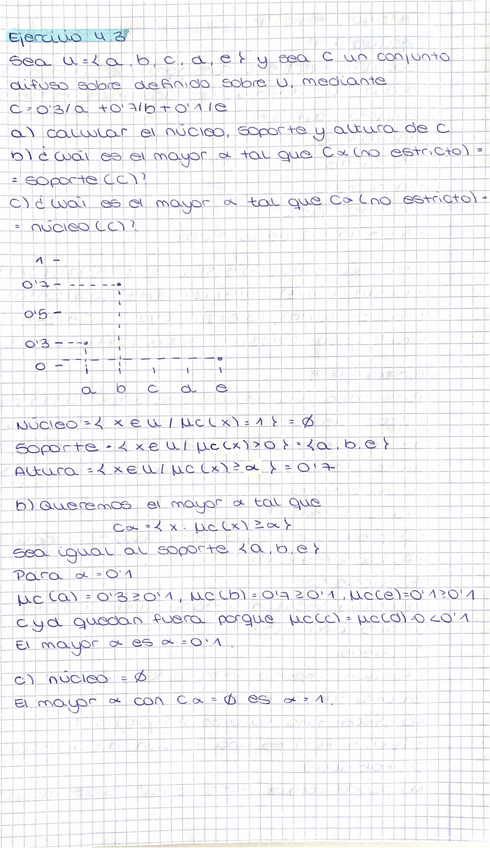 Ejercicio 4.3
Sea U={a,b,c,d,e} y sea C un conjunto
difuso sobre definido sobre U, mediante
C=0'3/a +0'7/b+0'1/e
a) calcular el núcleo, soporte y altura de C
b) ¿cuál es el mayor α tal que Cα(no estricto) =
= soporte(C)?
c) ¿cuál es el mayor α tal que Cα(no estricto)=
= núcleo(C)?
1
0'7
0'5
0'3
0
a b c d e
Núcleo={x∈U/μc(x)=1}=∅
Soporte={x∈U/μc(x)>0}={a,b,e}
Altura={x∈U/μc(x)≥α}=0'7
b) Queremos el mayor α tal que
Cα={x: μc(x)≥α}
Sea igual al soporte {a,b,e}
Para α=0'1
μc(a)=0'3≥0'1, μc(b)=0'7≥0'1, μc(e)=0'1≥0'1
c y d quedan fuera porque μc(c)=μc(d)=0<0'1
El mayor α es α=0'1.
c) núcleo = ∅
El mayor α con Cα=∅ es α=1.